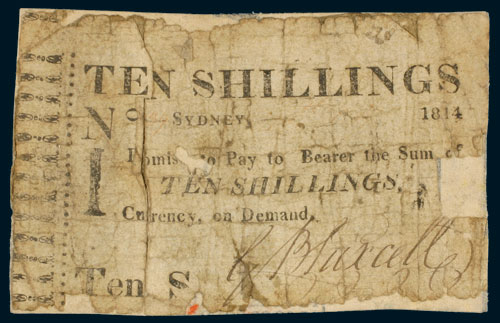 TEN SHILLINGS
No
SYDNEY, 1814
I Promise to Pay to Bearer the Sum of
TEN SHILLINGS,
Currency, on Demand.
G Blaxcell
Ten S